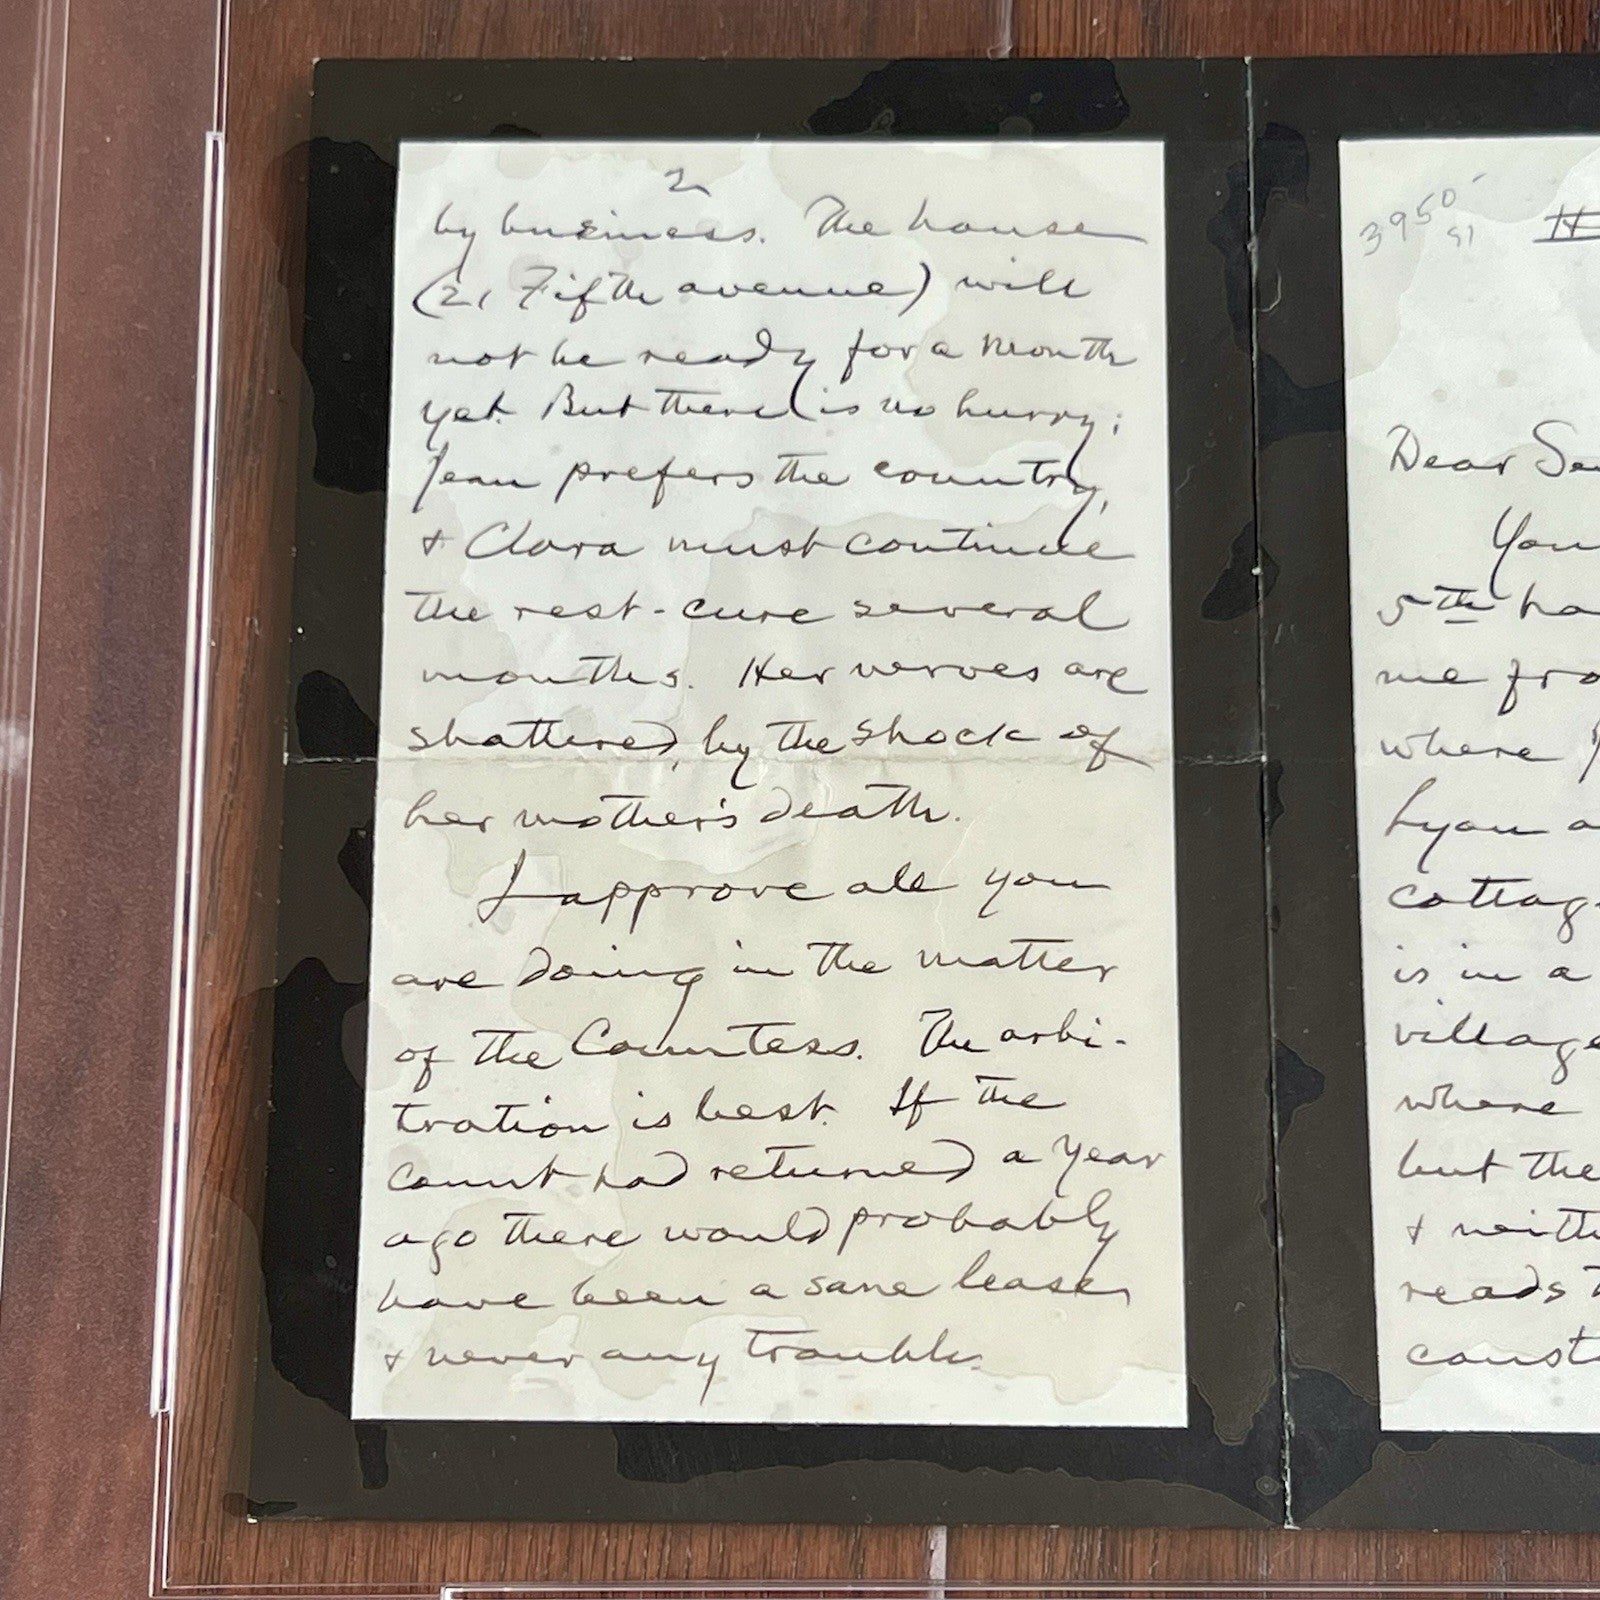 2
by business. The house
(21 Fifth avenue) will
not be ready for a month
yet. But there is no hurry;
Jean prefers the country,
& Clara must continue
the rest-cure several
months. Her nerves are
shattered, by the shock of
her mother's death.
I approve all you
are doing in the matter
of the Countess. The arbi-
tration is best. If the
count had returned a year
ago there would probably
have been a sane lease,
& never any trouble.
3950-
91
Dear
5th
me
where
is in a
village
where
but the
&
reads